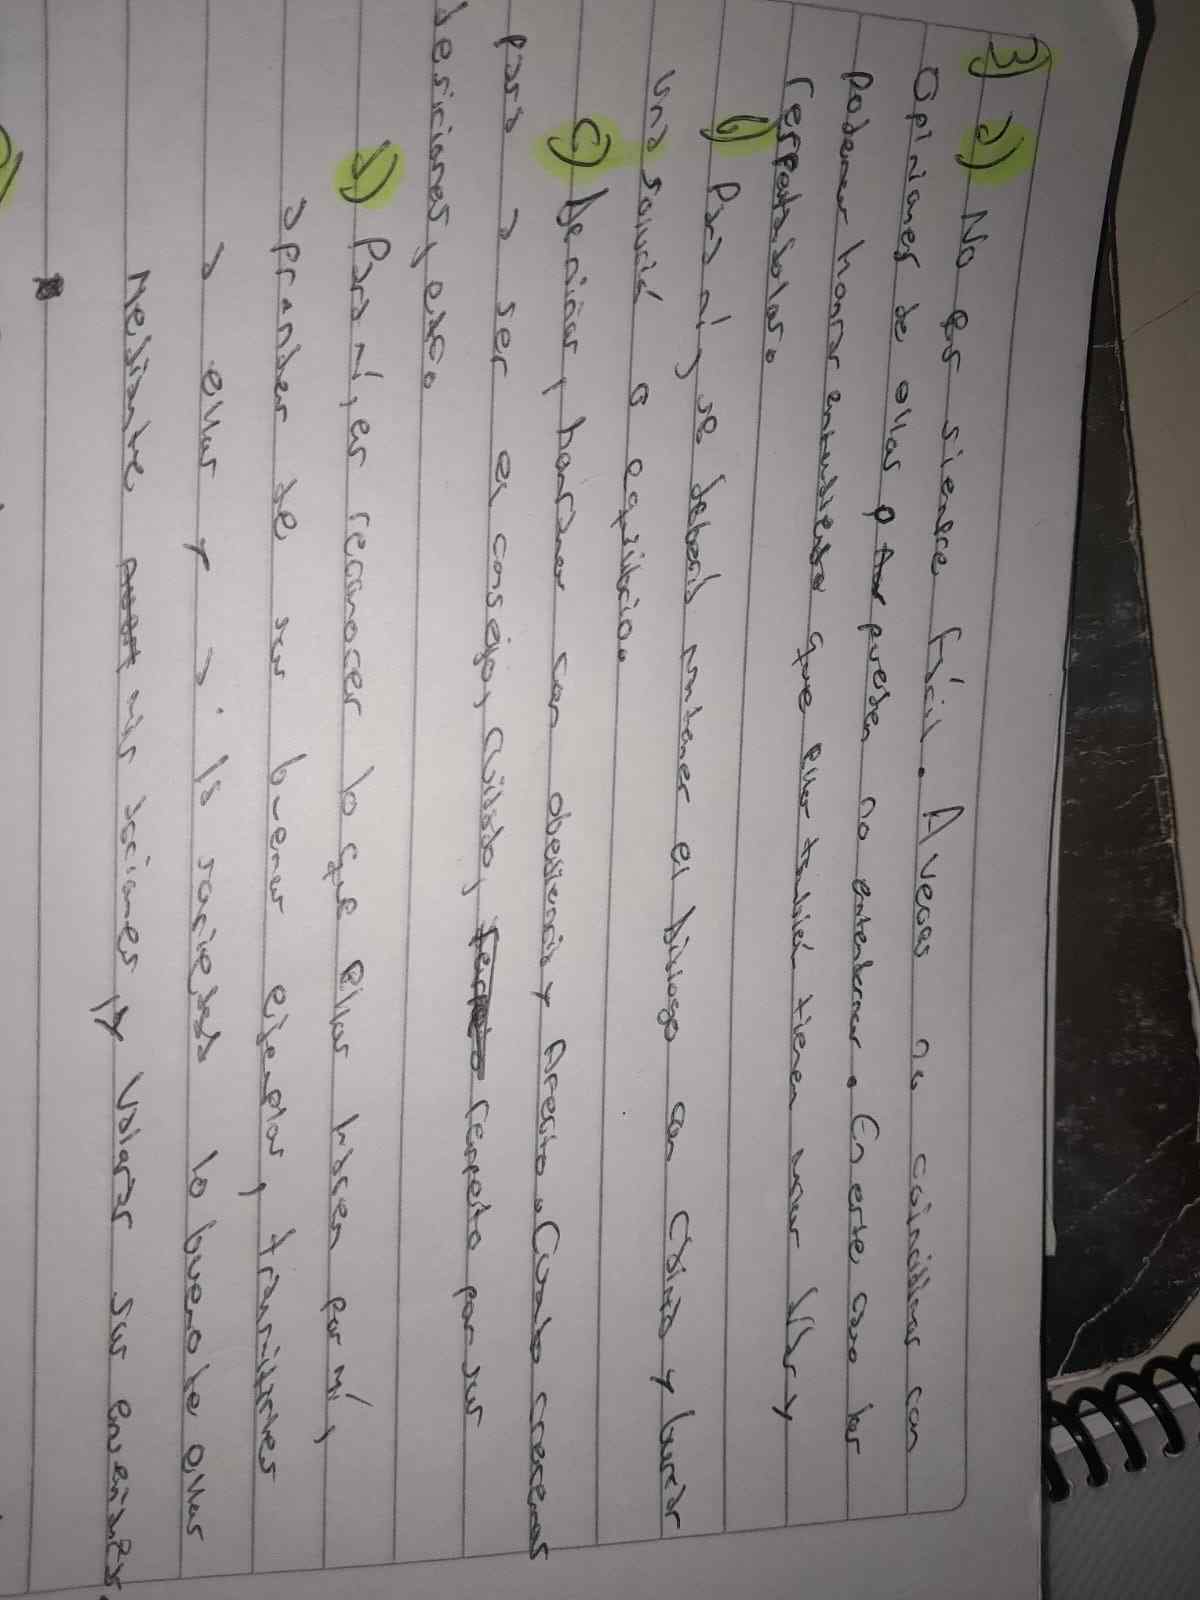 3) a) No es siempre fácil. A veces no coincidimos con
opiniones de ellos o puede no entendernos. En este caso los
podemos honrar entendiendo que ellos también tienen unas ideas y
respetándolas.
b) Para mí, se debería mantener el diálogo con calma y buscar
una solución o equilibrio.
c) De niños, honramos con obediencia y afecto. Cuando crecemos
pasa a ser el consejo, cuidado, respeto por sus
desiciones, etc.
d) Para mí, es reconocer lo que ellos hacen por mí,
aprender de sus buenos ejemplos, transmitirles
a ellos y a la sociedad lo bueno de ellos
Mediante mis acciones, y valorar sus enseñanzas.